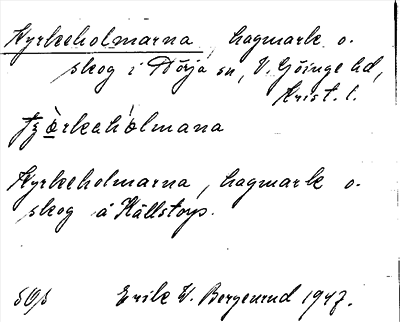 Kyrkeholmarna, hagmark o.
skog i Dörja sn, V. Göinge hd,
Krist. l.
Kyrkeholmarna, hagmark o.
skog å Hällstorp.
Erik V. Bergenrud 1947.